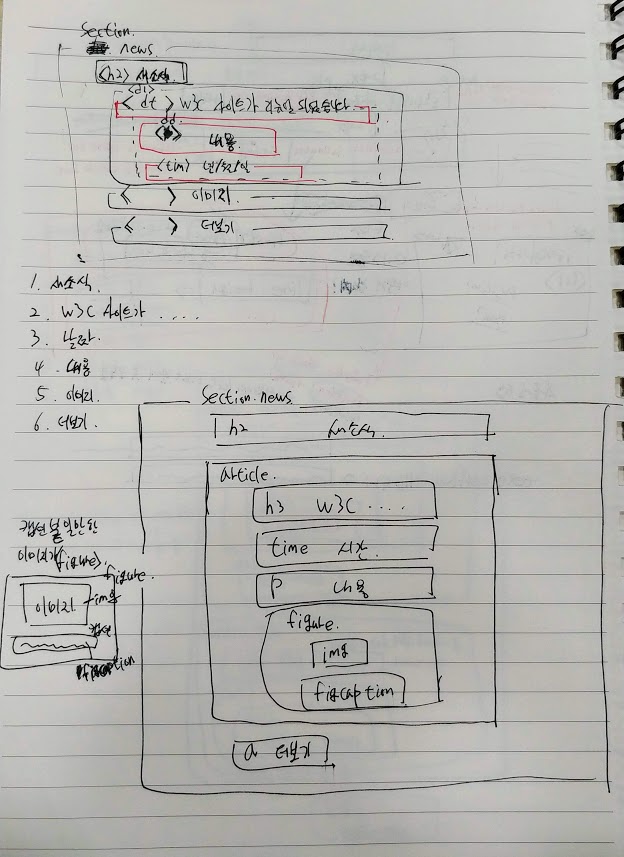 Section.
news
<h2> 새소식.
<dl>
< dt > W3C 사이트가 리뉴얼 되었습니다.
dd.
< > 내용.
<tim>
< > 이미지.
< > 더보기.
1. 새소식.
2. W3C 사이트가 ....
3. 날짜.
4. 내용
5. 이미지.
6. 더보기.
Section.news.
h2 새소식.
article.
h3 W3C ....
time 시간.
p 내용
figure.
img
figcaption
a 더보기
캡션
이미지가 (figure).
figure.
이미지 img
캡션
figcaption